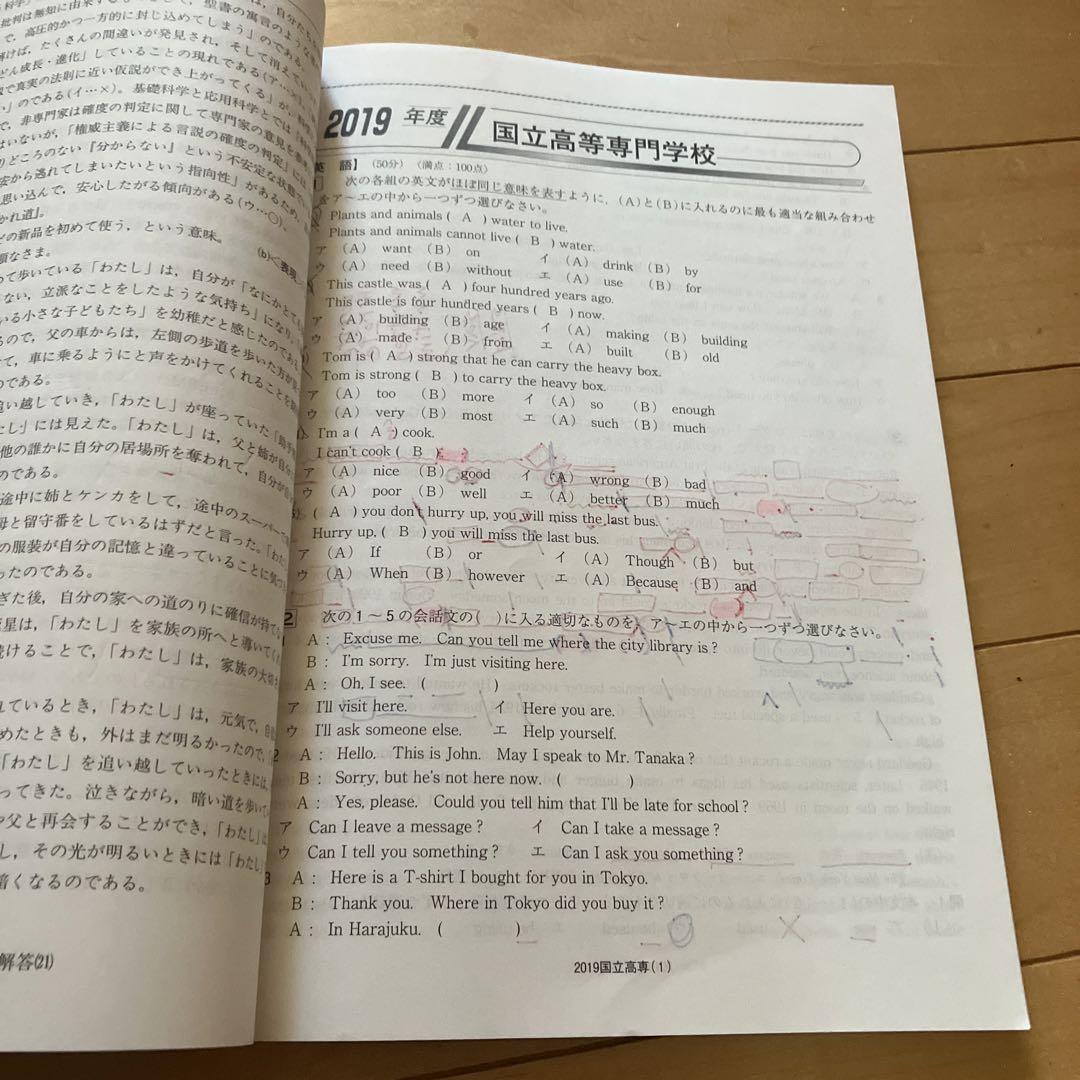 批判は無知に由来する
で，高圧的かつ一方的に封じ込めてしまう」のである
解けば，たくさんの間違いが発見され，そして消えてい
どん成長・進化」していることの現れである(ア
で真実の法則に近い仮説ができ上がってくる」が
い」のである(イ…×)。基礎科学と応用科学とでは
で，非専門家は確度の判定に関して専門家の意見を参
はいないが，「権威主義による言説の確度の判定」には
りどころのない『分からない』という不安定な状態で
安から逃れてしまいたいという指向性」があるため，
思い込んで，安心したがる傾向がある(ウ…〇)。
かれ道』。
どの新品を初めて使う，という意味。
頂なさま。
(b)<表現>
って歩いている「わたし」は，自分が「なにかとても
ない，立派なことをしたような気持ち」になり，
いる小さな子どもたち」を幼稚だと感じたのである
るので，父の車からは，左側の歩道を歩いた方が見
て，車に乗るようにと声をかけてくれることを期
のである。
追い越していき，「わたし」が座っていた「助手席
たし」には見えた。「わたし」は，父と姉が自分
他の誰かに自分の居場所を奪われて，自分が
のである。
途中に姉とケンカをして，途中のスーパーで
母と留守番をしているはずだと言った。「わた
の服装が自分の記憶と違っていることに気づ
ったのである。
ぎた後，自分の家への道のりに確信が持て
星は，「わたし」を家族の所へと導いてく
続けることで，「わたし」は，家族の大切さ
れているとき，「わたし」は，元気で，自
めたときも，外はまだ明るかったので，
「わたし」を追い越していったときには，
ってきた。泣きながら，暗い道を歩いて
や父と再会することができ，「わたし」は
し，その光が明るいときには「わたし」
暗くなるのである。
解答(21)
2019年度 国立高等専門学校
英 語】 (50分) (満点：100点)
次の各組の英文がほぼ同じ意味を表すように，(A)と(B)に入れるのに最も適当な組み合わせ
をア〜エの中から一つずつ選びなさい。
Plants and animals ( A ) water to live.
Plants and animals cannot live ( B ) water.
ア (A) want (B) on イ (A) drink (B) by
ウ (A) need (B) without エ (A) use (B) for
This castle was ( A ) four hundred years ago.
This castle is four hundred years ( B ) now.
ア (A) building (B) age イ (A) making (B) building
ウ (A) made (B) from エ (A) built (B) old
Tom is ( A ) strong that he can carry the heavy box.
Tom is strong ( B ) to carry the heavy box.
ア (A) too (B) more イ (A) so (B) enough
ウ (A) very (B) most エ (A) such (B) much
I'm a ( A ) cook.
I can't cook ( B ).
ア (A) nice (B) good イ (A) wrong (B) bad
ウ (A) poor (B) well エ (A) better (B) much
( A ) you don't hurry up, you will miss the last bus.
Hurry up, ( B ) you will miss the last bus.
ア (A) If (B) or イ (A) Though (B) but
ウ (A) When (B) however エ (A) Because (B) and
2 次の1〜5の会話文の( )に入る適切なものを，ア〜エの中から一つずつ選びなさい。
A： Excuse me. Can you tell me where the city library is?
B： I'm sorry. I'm just visiting here.
A： Oh, I see. ( )
ア I'll visit here. イ Here you are.
ウ I'll ask someone else. エ Help yourself.
2 A： Hello. This is John. May I speak to Mr. Tanaka?
B： Sorry, but he's not here now. ( )
A： Yes, please. Could you tell him that I'll be late for school?
ア Can I leave a message? イ Can I take a message?
ウ Can I tell you something? エ Can I ask you something?
3 A： Here is a T-shirt I bought for you in Tokyo.
B： Thank you. Where in Tokyo did you buy it?
A： In Harajuku. ( )
2019国立高専(1)